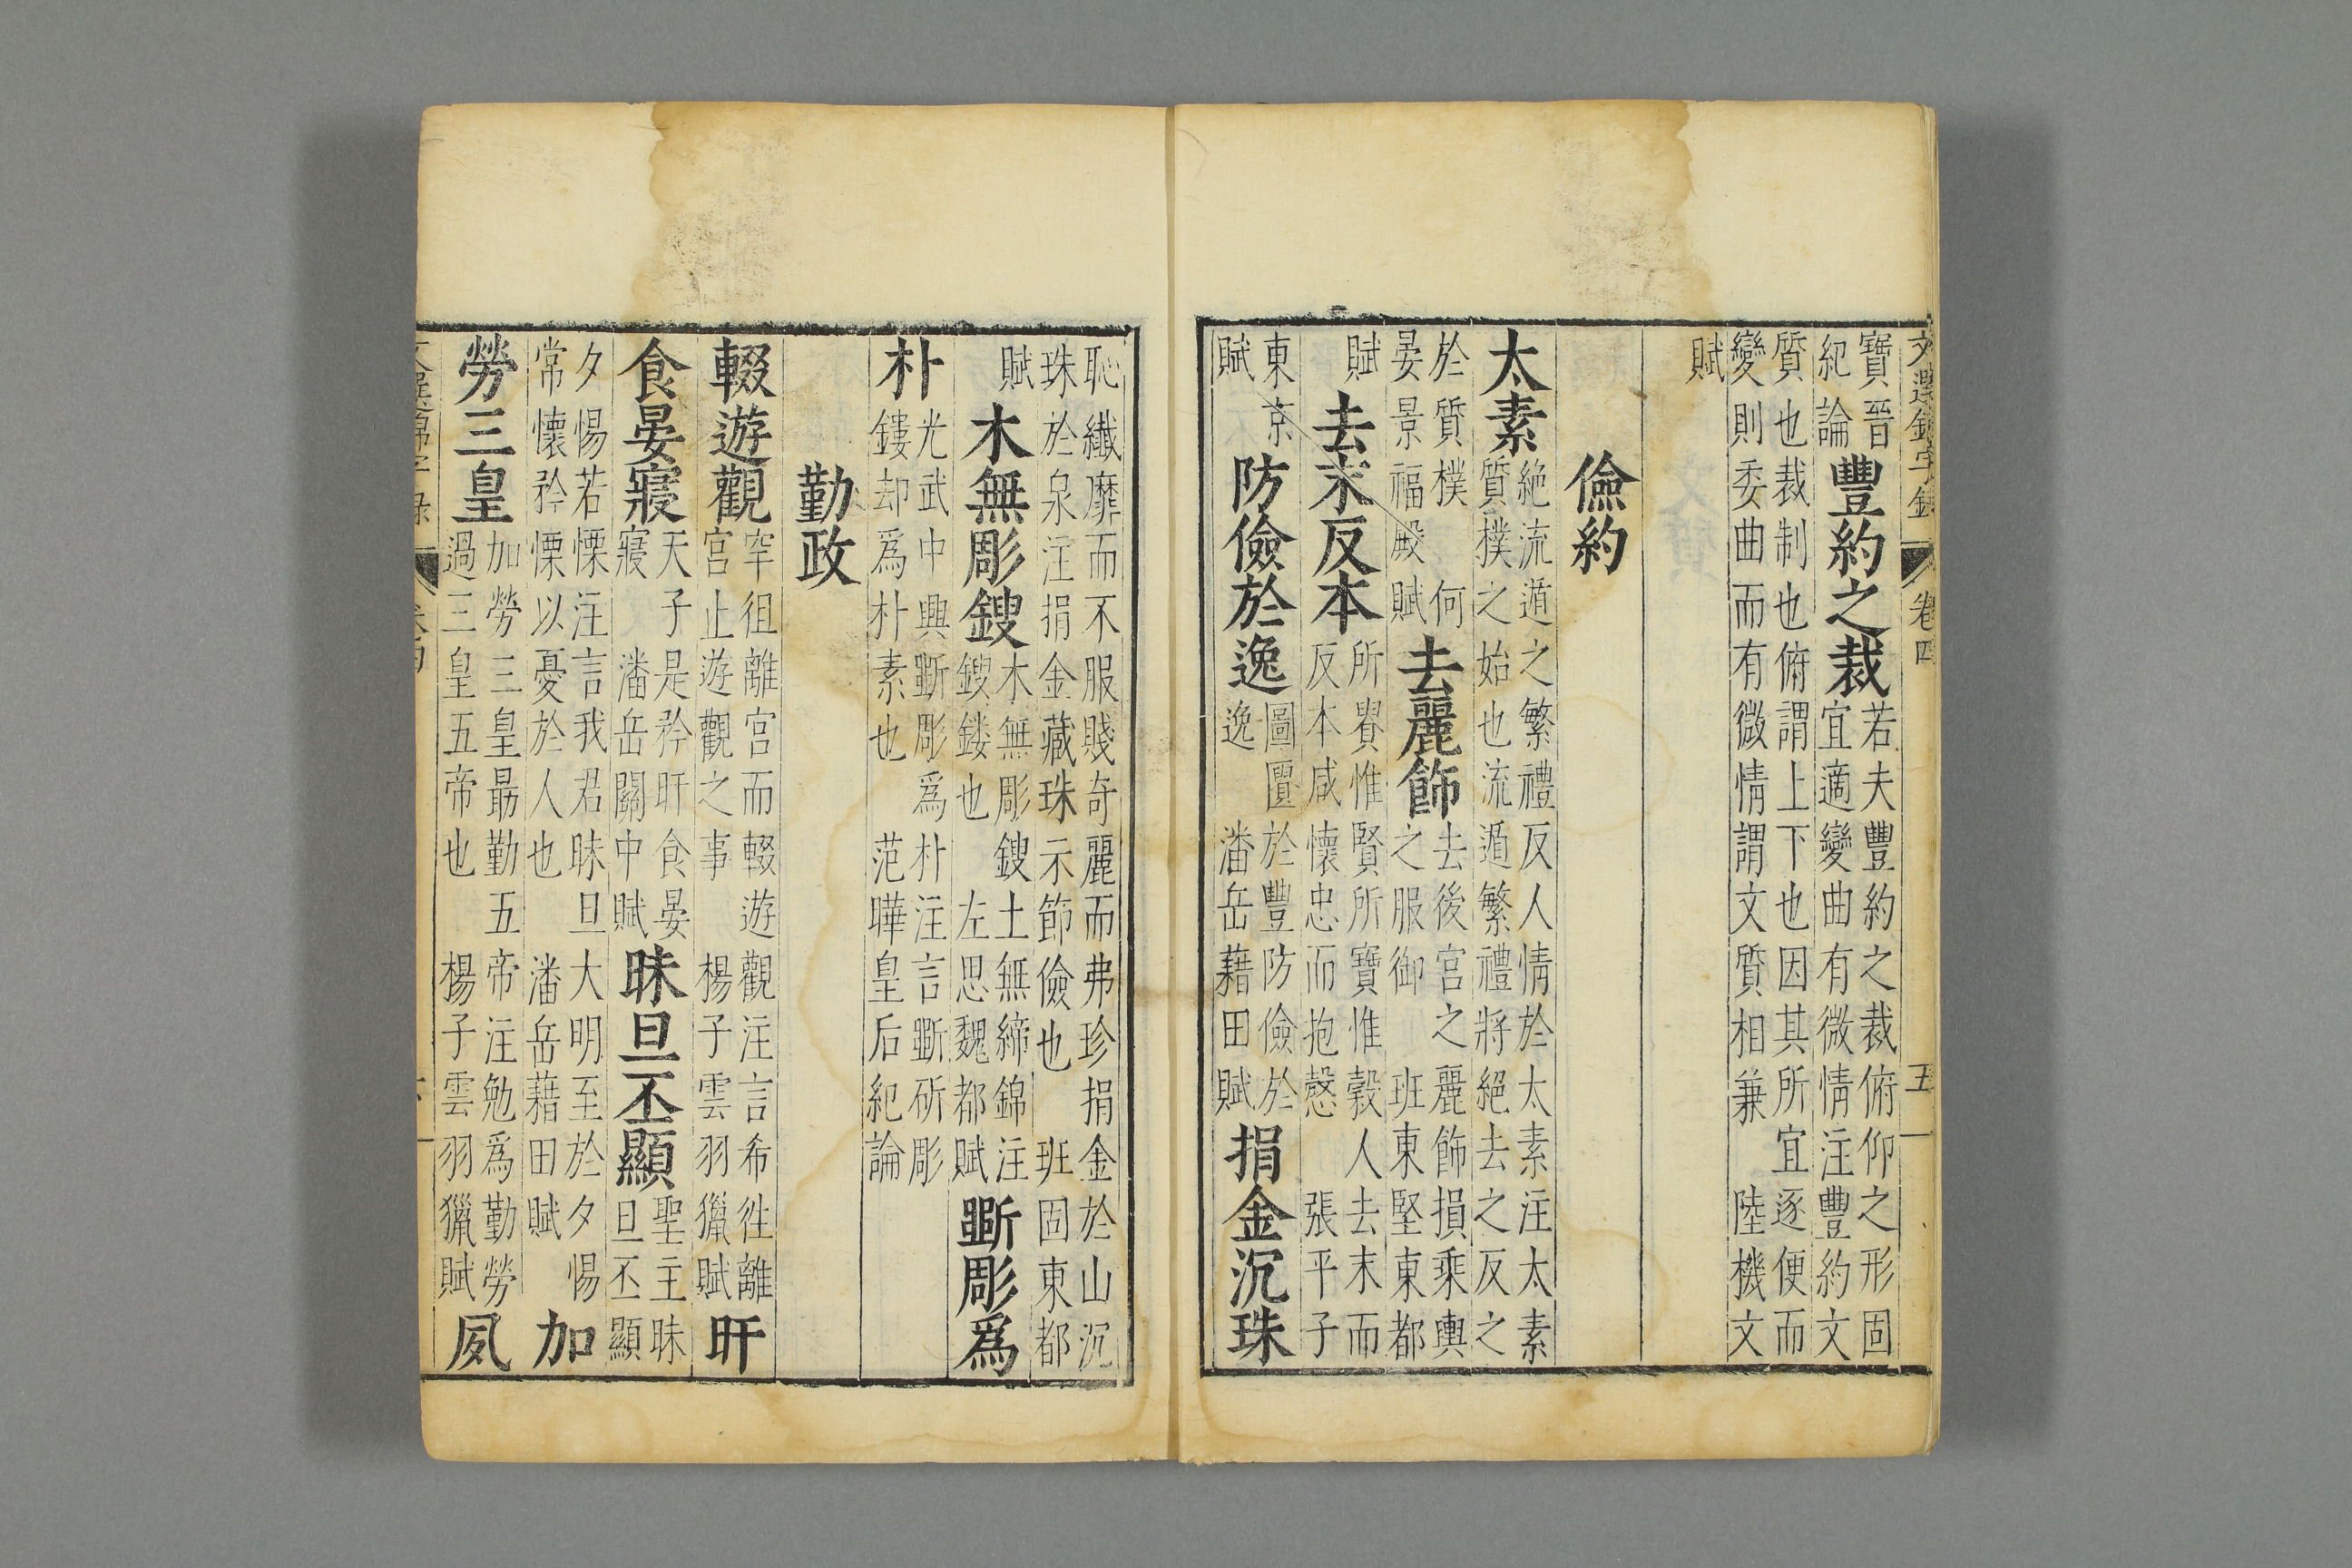 文選錦字錄 卷四 五
寶晉紀論 豐約之裁 若夫豐約之裁俯仰之形固宜適變曲有微情注豐約文
質也裁制也俯謂上下也因其所宜逐便而變則委曲而有微情謂文質相兼 陸機文
賦
儉約
太素 絶流遁之繁禮反人情於太素注太素質撲之始也流遁繁禮將絕去之反之
於質樸 何晏景福殿賦 去麗飾 去後宮之麗飾損乘輿之服御 班東堅東都
賦 去末反本 所貴惟賢所寶惟穀人去末而反本咸懷忠而抱愨 張平子
東京賦 防儉於逸 圖匱於豐防儉於逸 潘岳藉田賦 捐金沉珠
恥纖靡而不服賤奇麗而弗珍捐金於山沉珠於泉注捐金藏珠示節儉也 班固東都
賦 木無彫鎪 木無彫鎪土無綈錦注鎪鏤也 左思魏都賦 斲彫爲
朴 光武中興斲彫爲朴注言斲斫彫鏤却爲朴素也 范曄皇后紀論
勤政
輟遊觀 罕徂離宮而輟遊觀注言希徃離宮止遊觀之事 楊子雲羽獵賦 旰
食晏寢 天子是矜旰食晏寢 潘岳關中賦 昧旦丕顯 聖主昧旦丕顯
夕惕若慄注言我君昧旦大明至於夕惕常懷矜慄以憂於人也 潘岳藉田賦 加
勞三皇 加勞三皇勗勤五帝注勉爲勤勞過三皇五帝也 楊子雲羽獵賦 夙